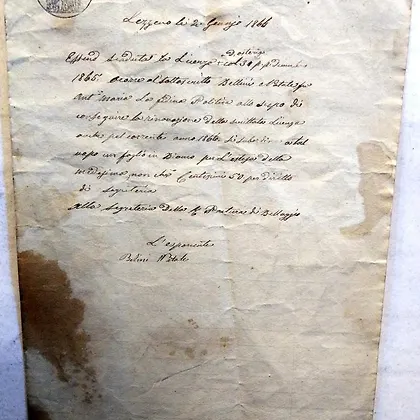 Lezzeno li 2 Genajo 1866
Essend scaduta la Licenza d'osteria
col 30 p. p. dicembre
1865 ocorre al sottoscritto Bellini Natale fu
Ant Maria La fedina Politica allo scopo di
conseguire la rinovazione della suvittata Licenza
anche pel corrente anno 1866
uopo un foglio in Bianco per l'estesa della
medesima non che Centesimi 50 per diritti
di segreteria
Alla Segreteria della R Pretura di Bellaggio
L'esponente
Belini Natale